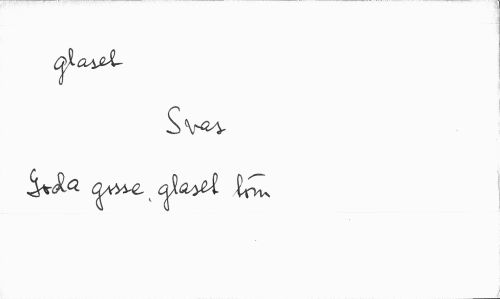 glaset
Svas
Goda gosse, glaset töm